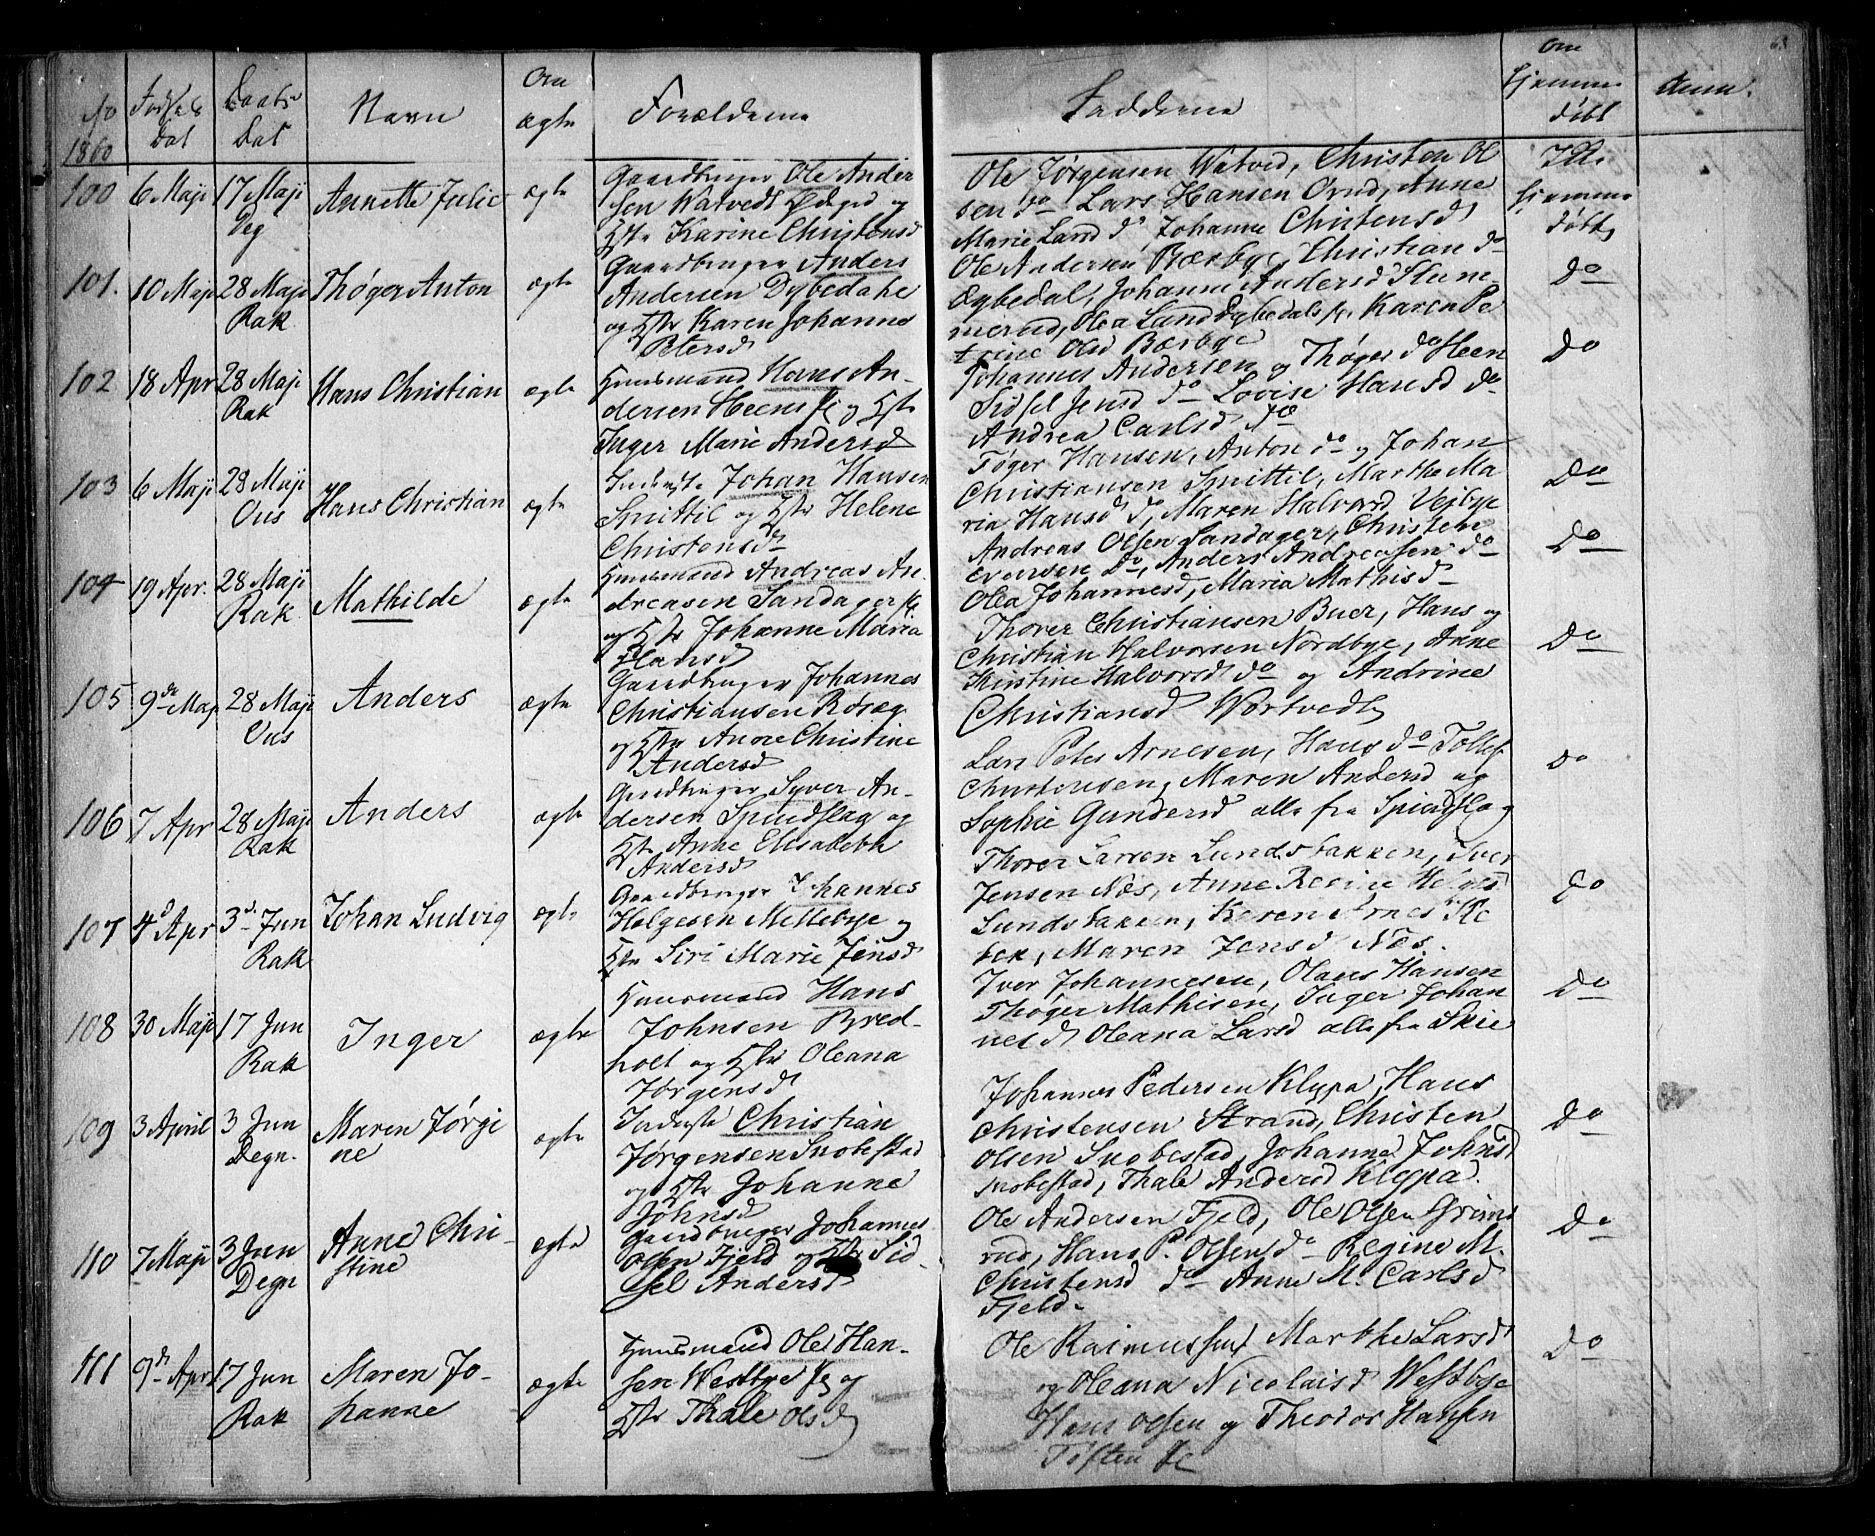 63
No 1860 Fødsels Dat Daabs Dat Navn Om ægte Forældrene Fadderne Om hjemme døbt Anm.
100 6 Maji 17 Maji Annette Julie ægte Gaardbruger Ole Ander
sen Watvedt Ødegrd og
Hstr Karine Christensd
Ole Jørgensen Watved, Christen Ol
sen do Lars Hansen Ørud, Anne
Marie Land d Johanne Christensd
hjemme
døbt
101. 10 Maji 28 Maji Rak Thøger Anton ægte Gaardbruger Anders
Andersen Dybedahl
og Hstr Karen Johanne
Petersd
Ole Andersen Bærbye, Christian do
Dybedal, Johanne Andersd Stune
merud, Olea Lund Dybedals ie. Karen Pe
trine Olsd Bærbye
Do
102 18 Apr 28 Maji Rak Hans Christian ægte Huusmand Hans An-
dersen Heens ie og Hstr
Inger Marie Andersd
Johannes Andersen og Thøger do Heen
Sidsel Jensd do Lovise Hansd do
Andrea Carlsd do
Do
103 6 Maji 28 Maji Ous Hans Christian ægte Inderste Johan Hansen
Smittil og Hstr Helene
Christensd
Tøger Hansen, Anton do og Johan
Christiansen Smittil, Marthe Ma
ria Hansd do, Maren Halvorsd Vejbye
Do
104 19 Apr. 28 Maji Rak Mathilde ægte Huusmand Andreas An-
dreasen Sandager ie
og Hstr Johanne Maria
Hansd
Andreas Olsen Sandager, Christen
Eversen Do, Anders Andreassen do
Olea Johannesd, Maria Mathisd
Do
105 9de Maj 28 Maji Ous Anders ægte Gaardbruger Johannes
Christiansen Røseg
og Hstr Anne Christine
Andersd
Thorer Christiansen Buer, Hans og
Christian Halvorsen Nordbye, Anne
Kirstine Halvorsd do og Andrine
Christiansd Wortvedt
Do
106 7 Apr 28 Maji Rak Anders ægte Gaardbruger Syver An-
dersen Spindflag og
Hstr Anne Elisabeth
Andersd
Lars Peter Arnesen, Hans do Tollef
Christensen, Maren Andersd og
Sophie Gundersd alle fra Spindflag
Do
107 4d Apr 3d Jun Rak Johan Ludvig ægte Gaardbruger Johannes
Helgesen Mellebye og
Hstr Siri Marie Jensd
Thorer Larsen Lundsbakken, Iver
Jensen Næs, Anne Regine Helgesd
Lundsbakken, Karen Arnesd Re
bek, Maren Jensd Næs.
Do
108 30 Maji 17 Jun Rak Inger ægte Huusmand Hans
Johnsen Bred-
holt og Hstr Oleana
Jørgensd
Iver Johannesen, Olaus Hansen
Thøger Mathisen, Inger Johan
nesd Oleana Larsd alle fra Skie
Do
109 3 April 3 Jun Degn. Maren Jørgi
ne ægte Inderste Christian
Jørgensen Snobestad
og Hstr Johanne
Johnsd
Johannes Pedersen Klypa, Hans
Christensen Strand, Christen
Olsen Snobestad, Johanne Johnsd
Snobestad, Thale Andersd Klypa.
Do
110 7 Maji 3 Jun Degn Anne Chri-
stine ægte Gaardbruger Johannes
Olsen Fjeld og Hstr Sid-
sel Andersd
Ole Andersen Fjeld, Ole Olsen Grims
rud, Hans P. Olsen do Regine M.
Christensd do Anne M. Carlsd
Fjeld.
Do
111 9de Apr 17 Jun Rak Maren Jo-
hanne ægte Huusmand Ole Han-
sen Westbye ie og
Hstr Thale Olsd
Ole Rasmussen, Marthe Larsd
og Oleana Nicolaisd Westbye
Hans Olsen og Theodor Hansen
Toften ie
Do